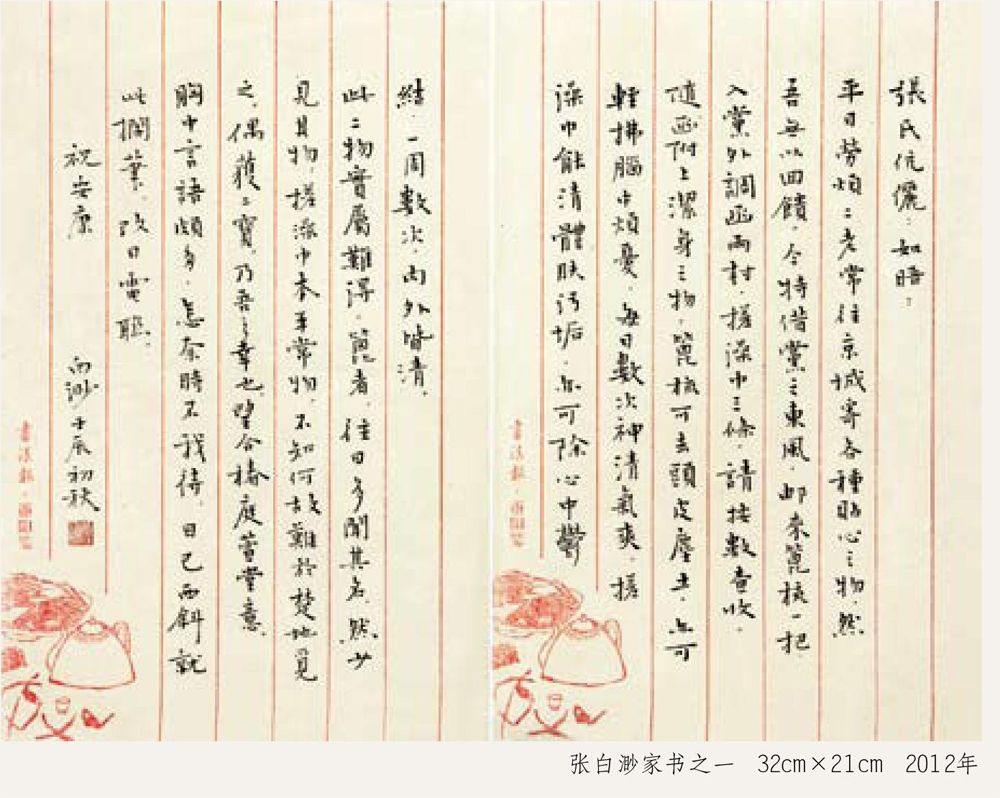 張氏伉儷：如晤：
平日勞煩二老常往京城寄各種貼心之物，然
吾無以回饋，今特借黨之東風，邮来篦梳一把，
入黨外調函兩封，搓澡巾三條，請按數查收，
隨函附上潔身之物，篦梳可去頭皮塵土，亦可
輕拂腦中煩憂，每日數次神清氣爽，搓
澡巾能清體膚污垢，亦可除心中鬱
結，一周數次，内外皆清，
此二物實屬難得，篦者，往日多聞其名，然少
見其物，搓澡巾本平常物，不知何故難於楚地覓
之，偶獲二寶，乃吾之幸也，望合椿庭萱堂意，
胸中言語頗多，怎奈時不我待，日已西斜就
此擱筆，改日電聯，
祝安康
白渺壬辰初秋
書法報
書法報
张白渺家书之一 32cm×21cm 2012年